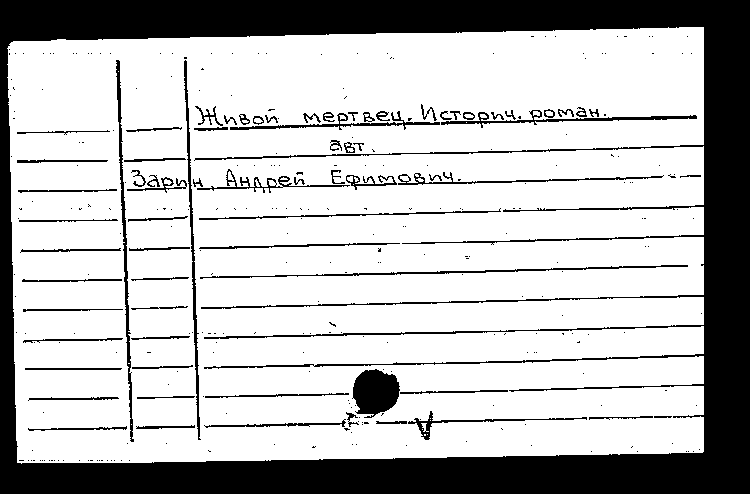 Живой мертвец. Историч. роман.
авт.
Зарин, Андрей Ефимович.
V